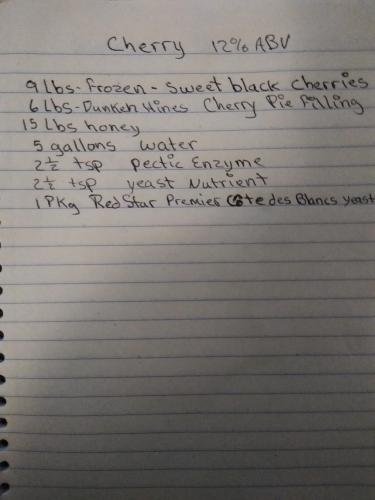 Cherry 12% ABV
9 Lbs- Frozen - Sweet black Cherries
6 Lbs- Dunken Hines Cherry Pie Filling
15 Lbs honey
5 gallons water
2½ tsp pectic Enzyme
2½ tsp yeast Nutrient
1 PKg Red Star Premier Cote des Blancs yeast